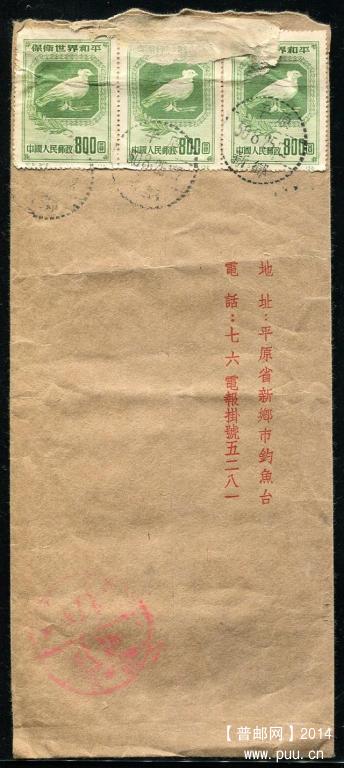 保衛世界和平
中國人民郵政 800圓
保衛世界和平
中國人民郵政 800圓
保衛世界和平
中國人民郵政 800圓
地址：平原省新鄉市釣魚台
電話：七六 電報掛號五二八一
【普邮网】2014
www.puu.cn